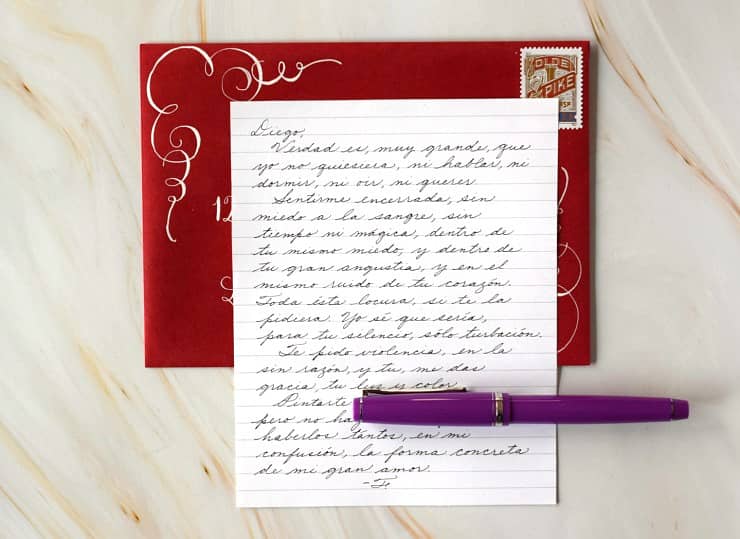 GOLDEN
SPIKE
Diego,
Verdad es, muy grande, que
yo no quiesiera, ni hablar, ni
dormir, ni oir, ni querer.
Sentirme encerrada, sin
miedo a la sangre, sin
tiempo ni mágica, dentro de
tu mismo miedo, y dentro de
tu gran angustia, y en el
mismo ruido de tu corazón.
Toda ésta locura, si te la
pidiera. Yo sé que sería,
para tu silencio, sólo turbación.
Te pido violencia, en la
sin razón, y tu, me das
gracia, tu luz y calor.
Pintarte
pero no
haberlos tántos, en mi
confusión, la forma concreta
de mi gran amor.
-F.